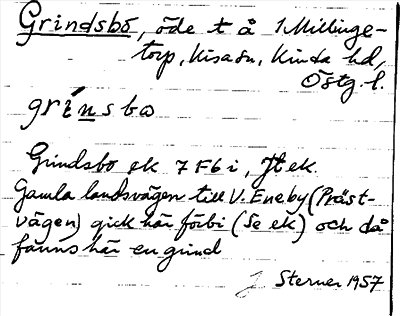 Grindsbo, öde t å 1 Millinge-
torp, Kisa sn, Kinda hd,
Östg. l.
grinsbo
Grindsbo ek 7 F6 i, Jt ek.
Gamla landsvägen till V. Eneby (Präst-
vägen) gick här förbi (se ek) och då
fanns här en grind
J Sterner 1957